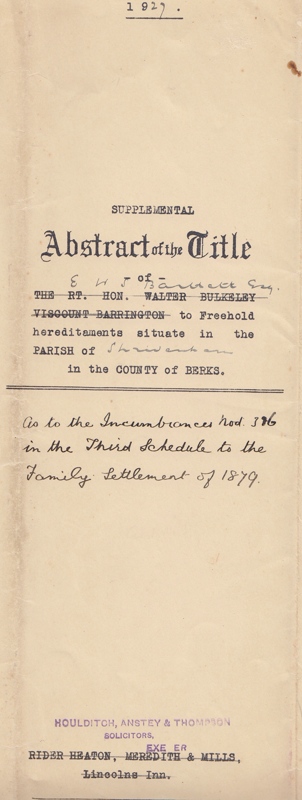 1929.
SUPPLEMENTAL
Abstract of the Title
- of -
E W J Bartlett Esq.
THE RT. HON. WALTER BULKELEY
VISCOUNT BARRINGTON to Freehold
hereditaments situate in the
PARISH of Shrivenham
in the COUNTY of BERKS.
As to the Incumbrances Nod. 3 & 6
in the Third Schedule to the
Family Settlement of 1879.
HOULDITCH, ANSTEY & THOMPSON
SOLICITORS,
EXE ER
RIDER HEATON, MEREDITH & MILLS,
Lincolns Inn.